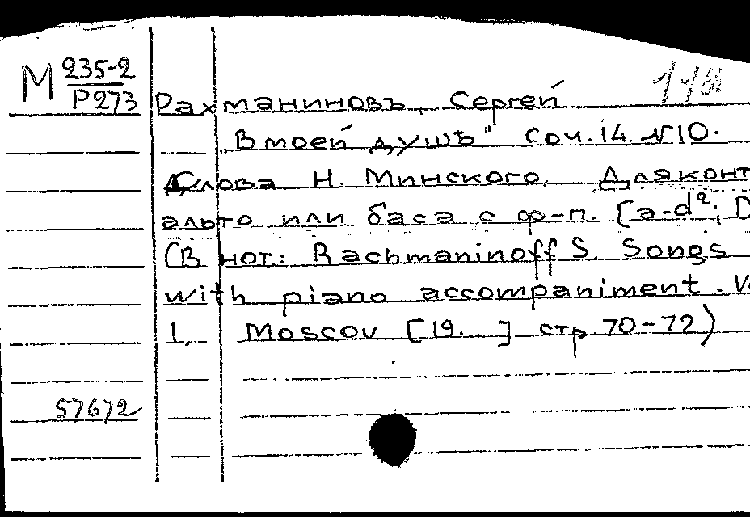 М 235-2
Р273
Рахманиновъ, Сергей
„В моей душѣ" Соч. 14. №10.
Слова Н. Минского. Для конт
альто или баса с ф-п. [a-d²; D
(В нот: Rachmaninoff S. Songs
with piano accompaniment. V
1, Moscov [19. ] стр. 70-72)
57672